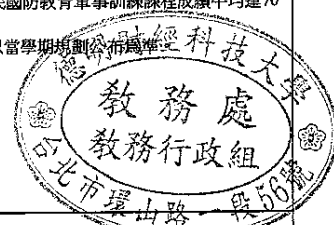 民國防教育軍事訓練課程成績平均達70
以當學期規劃公布為準
德明財經科技大學
教務處
教務行政組
台北市環山路一段56號